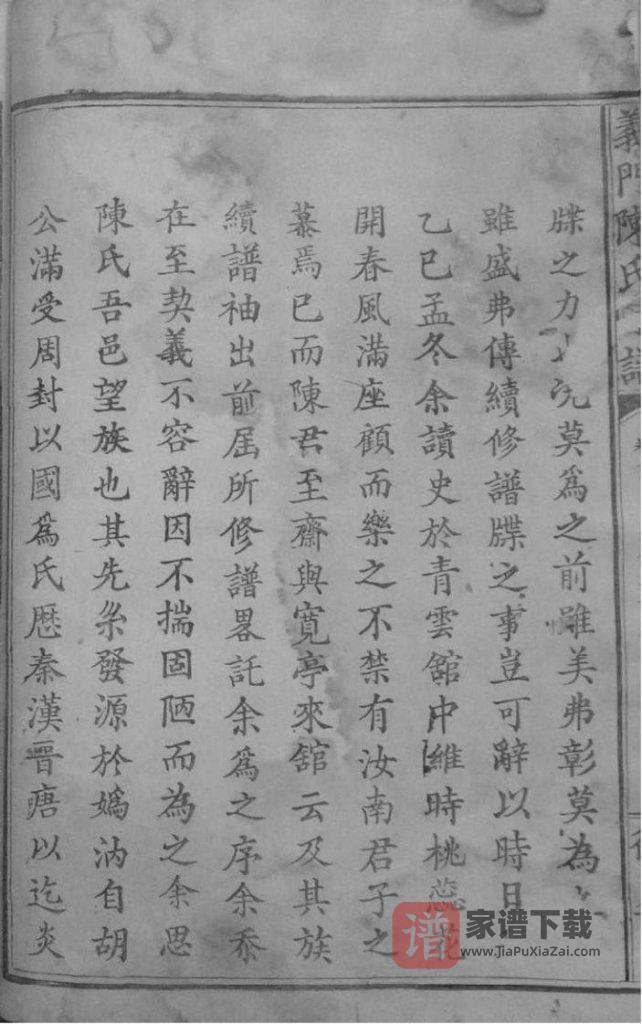 義門陳氏
牒之力況莫為之前雖美弗彰莫為
雖盛弗傳續修譜牒之事豈可辭以時日
乙巳孟冬余讀史於青雲舘中維時桃蕊花
開春風滿座顧而樂之不禁有汝南君子之
慕焉已而陳君至齋與寬亭來舘云及其族
續譜袖出前屆所修譜畧託余為之序余忝
在至契義不容辭因不揣固陋而為之余思
陳氏吾邑望族也其先系發源於媯汭自胡
公滿受周封以國為氏歷秦漢晉唐以迄炎
谱 家谱下载
www.JiaPuXiaZai.com